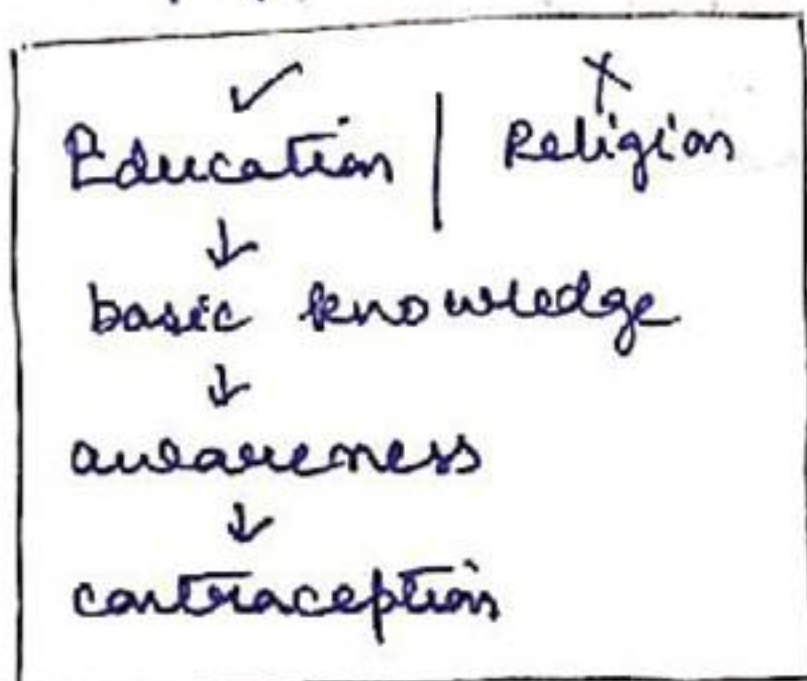 ✓ ✗
Education | Religion
↓
basic knowledge
↓
awareness
↓
contraception